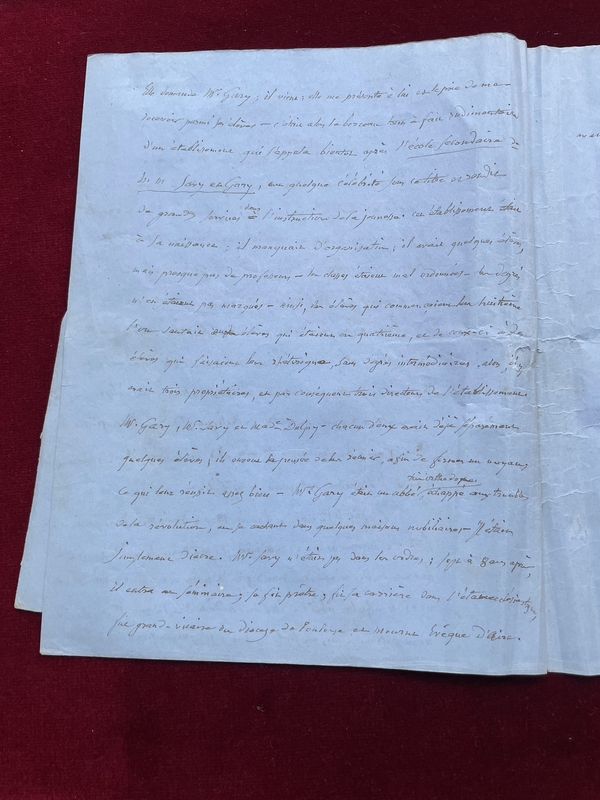 Elle demanda Mr. Gary ; il vint ; elle me présenta à lui et le pria de me
recevoir parmi ses élèves — c'était alors le berceau tout à fait rudimentaire
d'un établissement qui s'appela bientôt après l'école secondaire de
MM. Savy et Gary, eut quelque célébrité sous ce titre et rendit
de grands services dans l'instruction de la jeunesse. cet établissement était
à sa naissance ; il manquait d'organisation ; il avait quelques élèves,
mais presque pas de professeurs — les classes étaient mal ordonnées — les degrés
n'en étaient pas marqués — ainsi, les élèves qui commençaient leur huitième
l'on sautait aux élèves qui étaient en quatrième, et de ceux-ci à des
élèves qui faisaient leur rhétorique, sans degrés intermédiaires. alors, il y
avait trois propriétaires, et par conséquent trois directeurs de l'établissement.
Mr. Gary, Mr. Savy et Madme Delpy — chacun d'eux avait déjà séparément
quelques élèves ; ils eurent la pensée de les réunir, afin de former un noyau,
ce qui leur réussit assez bien — Mr. Gary était un abbé échappé aux troubles
de la révolution, en se cachant dans quelques maisons nobiliaires — Il était
simplement diacre. Mr. Savy n'était pas dans les ordres ; sept à 8 ans après,
il entra au séminaire, se fit prêtre, fit sa carrière dans l'état ecclésiastique,
fut grand-vicaire du diocèse de Toulouse et mourut Evêque d'Aire.